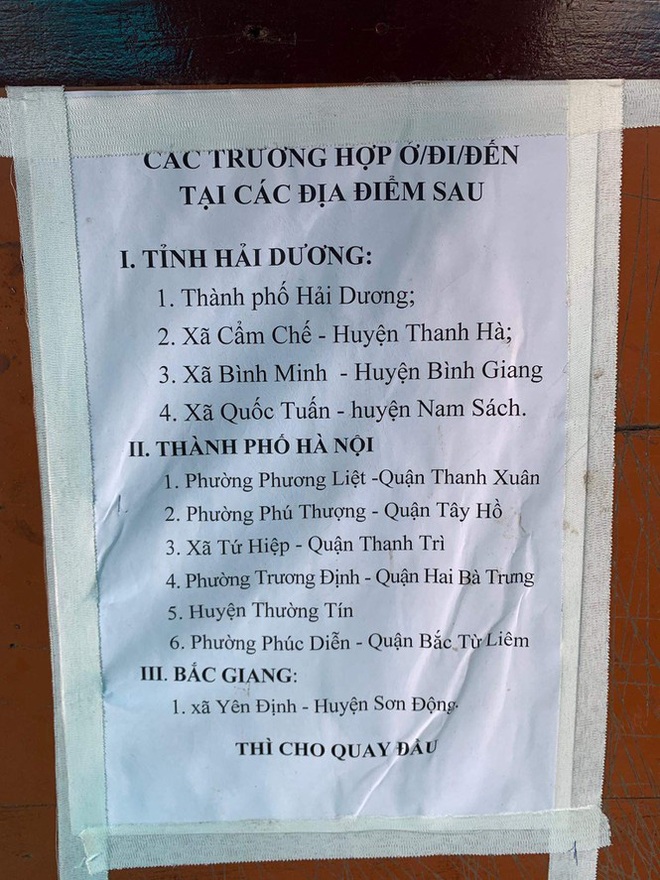 CÁC TRƯỜNG HỢP Ở/ĐI/ĐẾN
TẠI CÁC ĐỊA ĐIỂM SAU
I. TỈNH HẢI DƯƠNG:
1. Thành phố Hải Dương;
2. Xã Cẩm Chế - Huyện Thanh Hà;
3. Xã Bình Minh - Huyện Bình Giang
4. Xã Quốc Tuấn - huyện Nam Sách.
II. THÀNH PHỐ HÀ NỘI
1. Phường Phương Liệt -Quận Thanh Xuân
2. Phường Phú Thượng - Quận Tây Hồ
3. Xã Tứ Hiệp - Quận Thanh Trì
4. Phường Trương Định - Quận Hai Bà Trưng
5. Huyện Thường Tín
6. Phường Phúc Diễn - Quận Bắc Từ Liêm
III. BẮC GIANG:
1. xã Yên Định - Huyện Sơn Động.
THÌ CHO QUAY ĐẦU